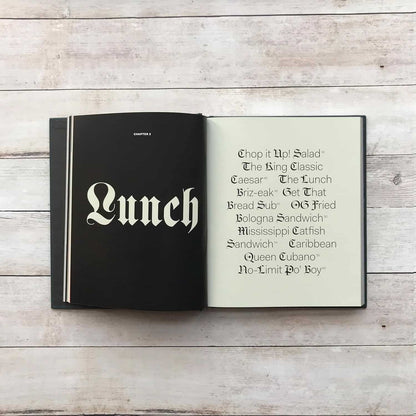 CHAPTER 2
Lunch
Chop it Up! Salad
The King Classic
Caesar The Lunch
Briz-eak Get That
Bread Sub OG Fried
Bologna Sandwich
Mississippi Catfish
Sandwich Caribbean
Queen Cubano
No-Limit Po' Boy